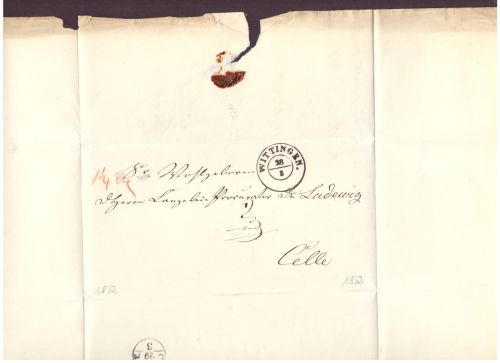 WITTINGEN.
28
3
Sr Wohlgeboren
d Herrn Canzelei Procurator Dr Ludewig
Celle
1852
1852
29
3